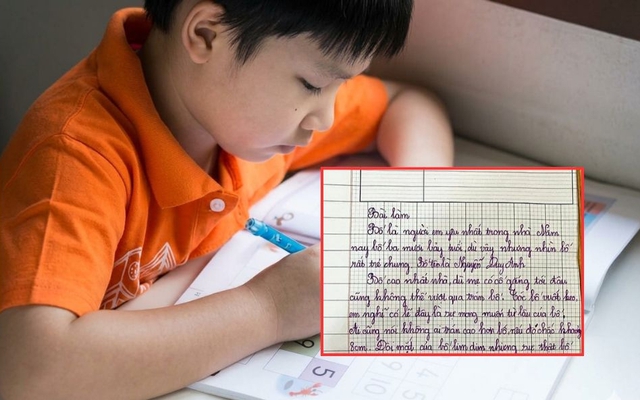 Bài làm
Bố là người em yêu nhất trong nhà. Năm
nay bố ba mươi bảy tuổi dù vậy nhưng nhìn bố
rất trẻ chung. Bố tên là Nguyễn Duy Anh
Bố cao nhất nhà, dù mẹ có cố gắng tới đâu
cũng không thể vượt qua trán bố. Tóc bố vuốt
em nghĩ có lẽ đây là sự mong muốn từ lâu của bố.
Ai cũng nói không ai trán cao hơn bố, nếu đo chắc khoảng
Đôi mắt của bố lim dim nhưng
5
9 10